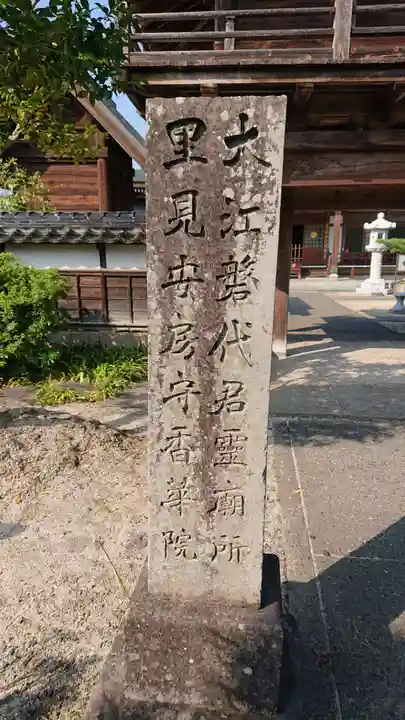 大江磐代君靈廟所
里見安房守香華院